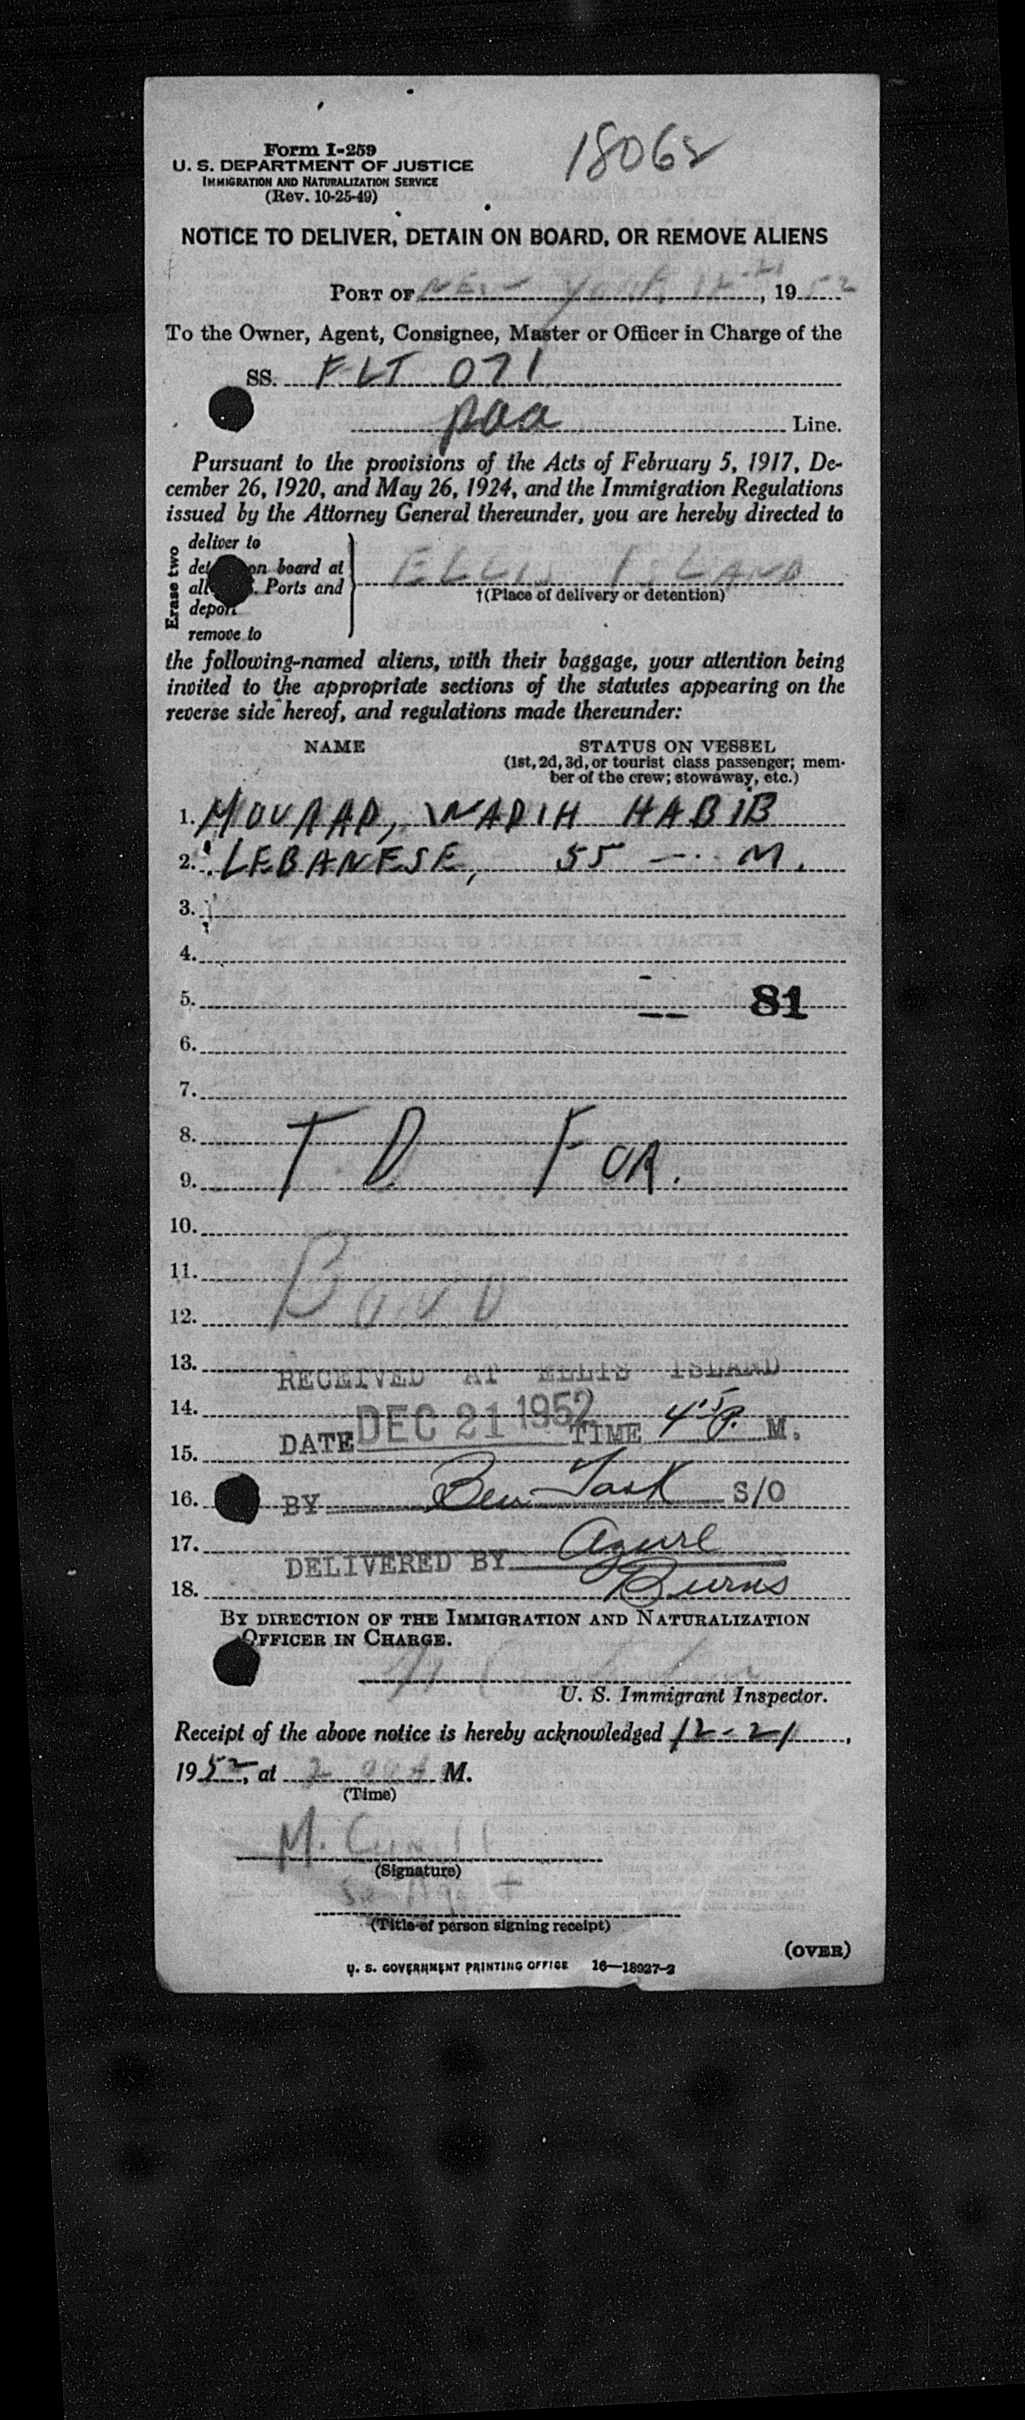 18062
Form I-259
U. S. DEPARTMENT OF JUSTICE
IMMIGRATION AND NATURALIZATION SERVICE
(Rev. 10-25-49)
NOTICE TO DELIVER, DETAIN ON BOARD, OR REMOVE ALIENS
PORT OF NEW YORK 12-21, 1952
To the Owner, Agent, Consignee, Master or Officer in Charge of the
SS. FLT 071
paa Line.
Pursuant to the provisions of the Acts of February 5, 1917, De-
cember 26, 1920, and May 26, 1924, and the Immigration Regulations
issued by the Attorney General thereunder, you are hereby directed to
Erase two
deliver to
on board at
Ports and
deport
remove to
ELLIS ISLAND
†(Place of delivery or detention)
the following-named aliens, with their baggage, your attention being
invited to the appropriate sections of the statutes appearing on the
reverse side hereof, and regulations made thereunder:
NAME STATUS ON VESSEL
(1st, 2d, 3d, or tourist class passenger; mem-
ber of the crew; stowaway, etc.)
1. MOURAD, WADIH HABIB
2. LEBANESE, 55 — M.
3.
4.
5. 81
6.
7.
8.
9. T D FOR.
10.
11.
12. BOND
13.
RECEIVED AT ELLIS ISLAND
14.
DATE DEC 21 1952 TIME 4 15 P. M.
15.
16. BY Ben Task S/O
17.
DELIVERED BY
18. Burns
BY DIRECTION OF THE IMMIGRATION AND NATURALIZATION
OFFICER IN CHARGE.
U. S. Immigrant Inspector.
Receipt of the above notice is hereby acknowledged 12-21,
1952, at M.
(Time)
M.
(Signature)
(Title of person signing receipt)
(OVER)
U. S. GOVERNMENT PRINTING OFFICE 16—18927-2